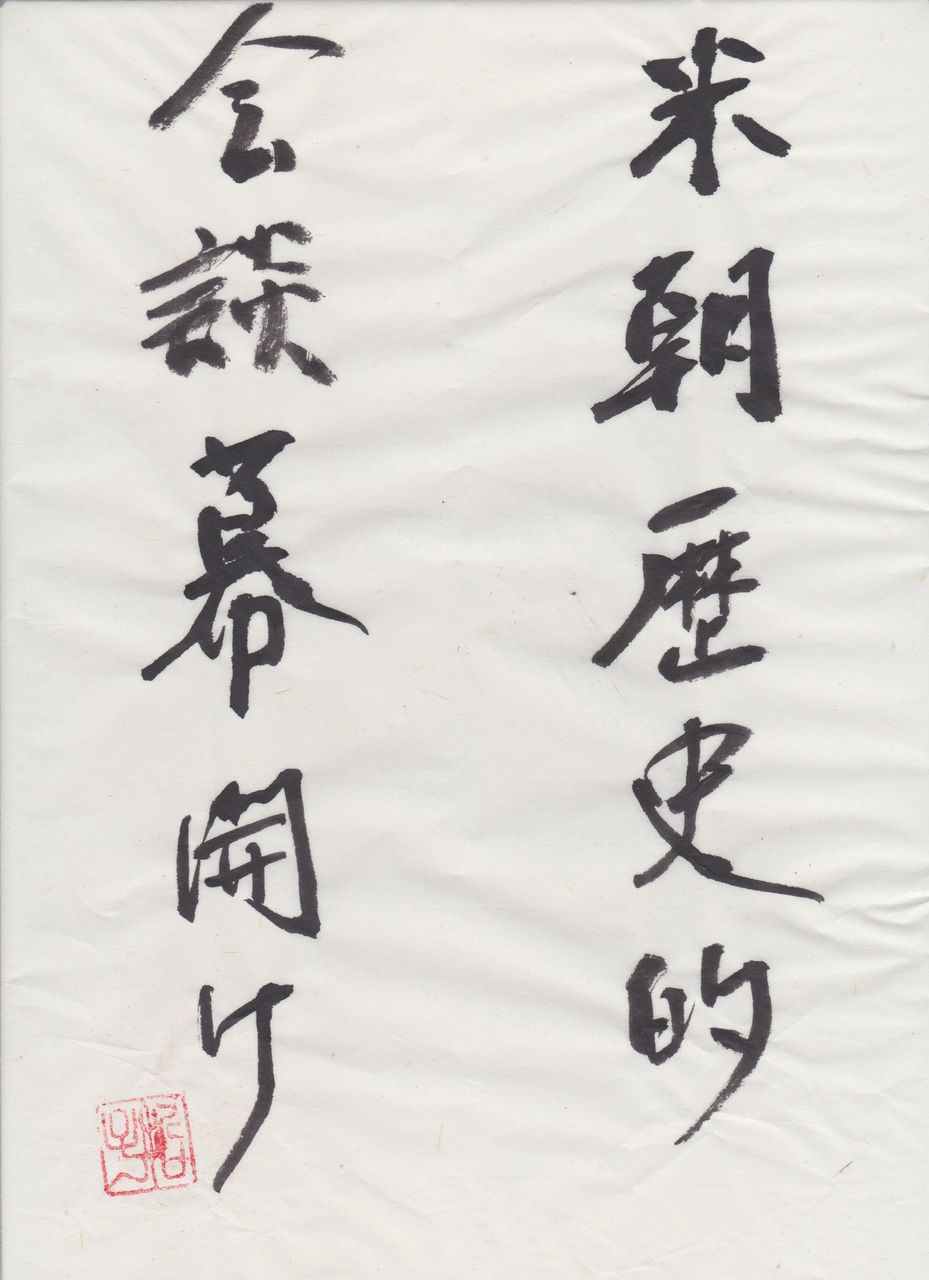 米朝歴史的
会談幕開け